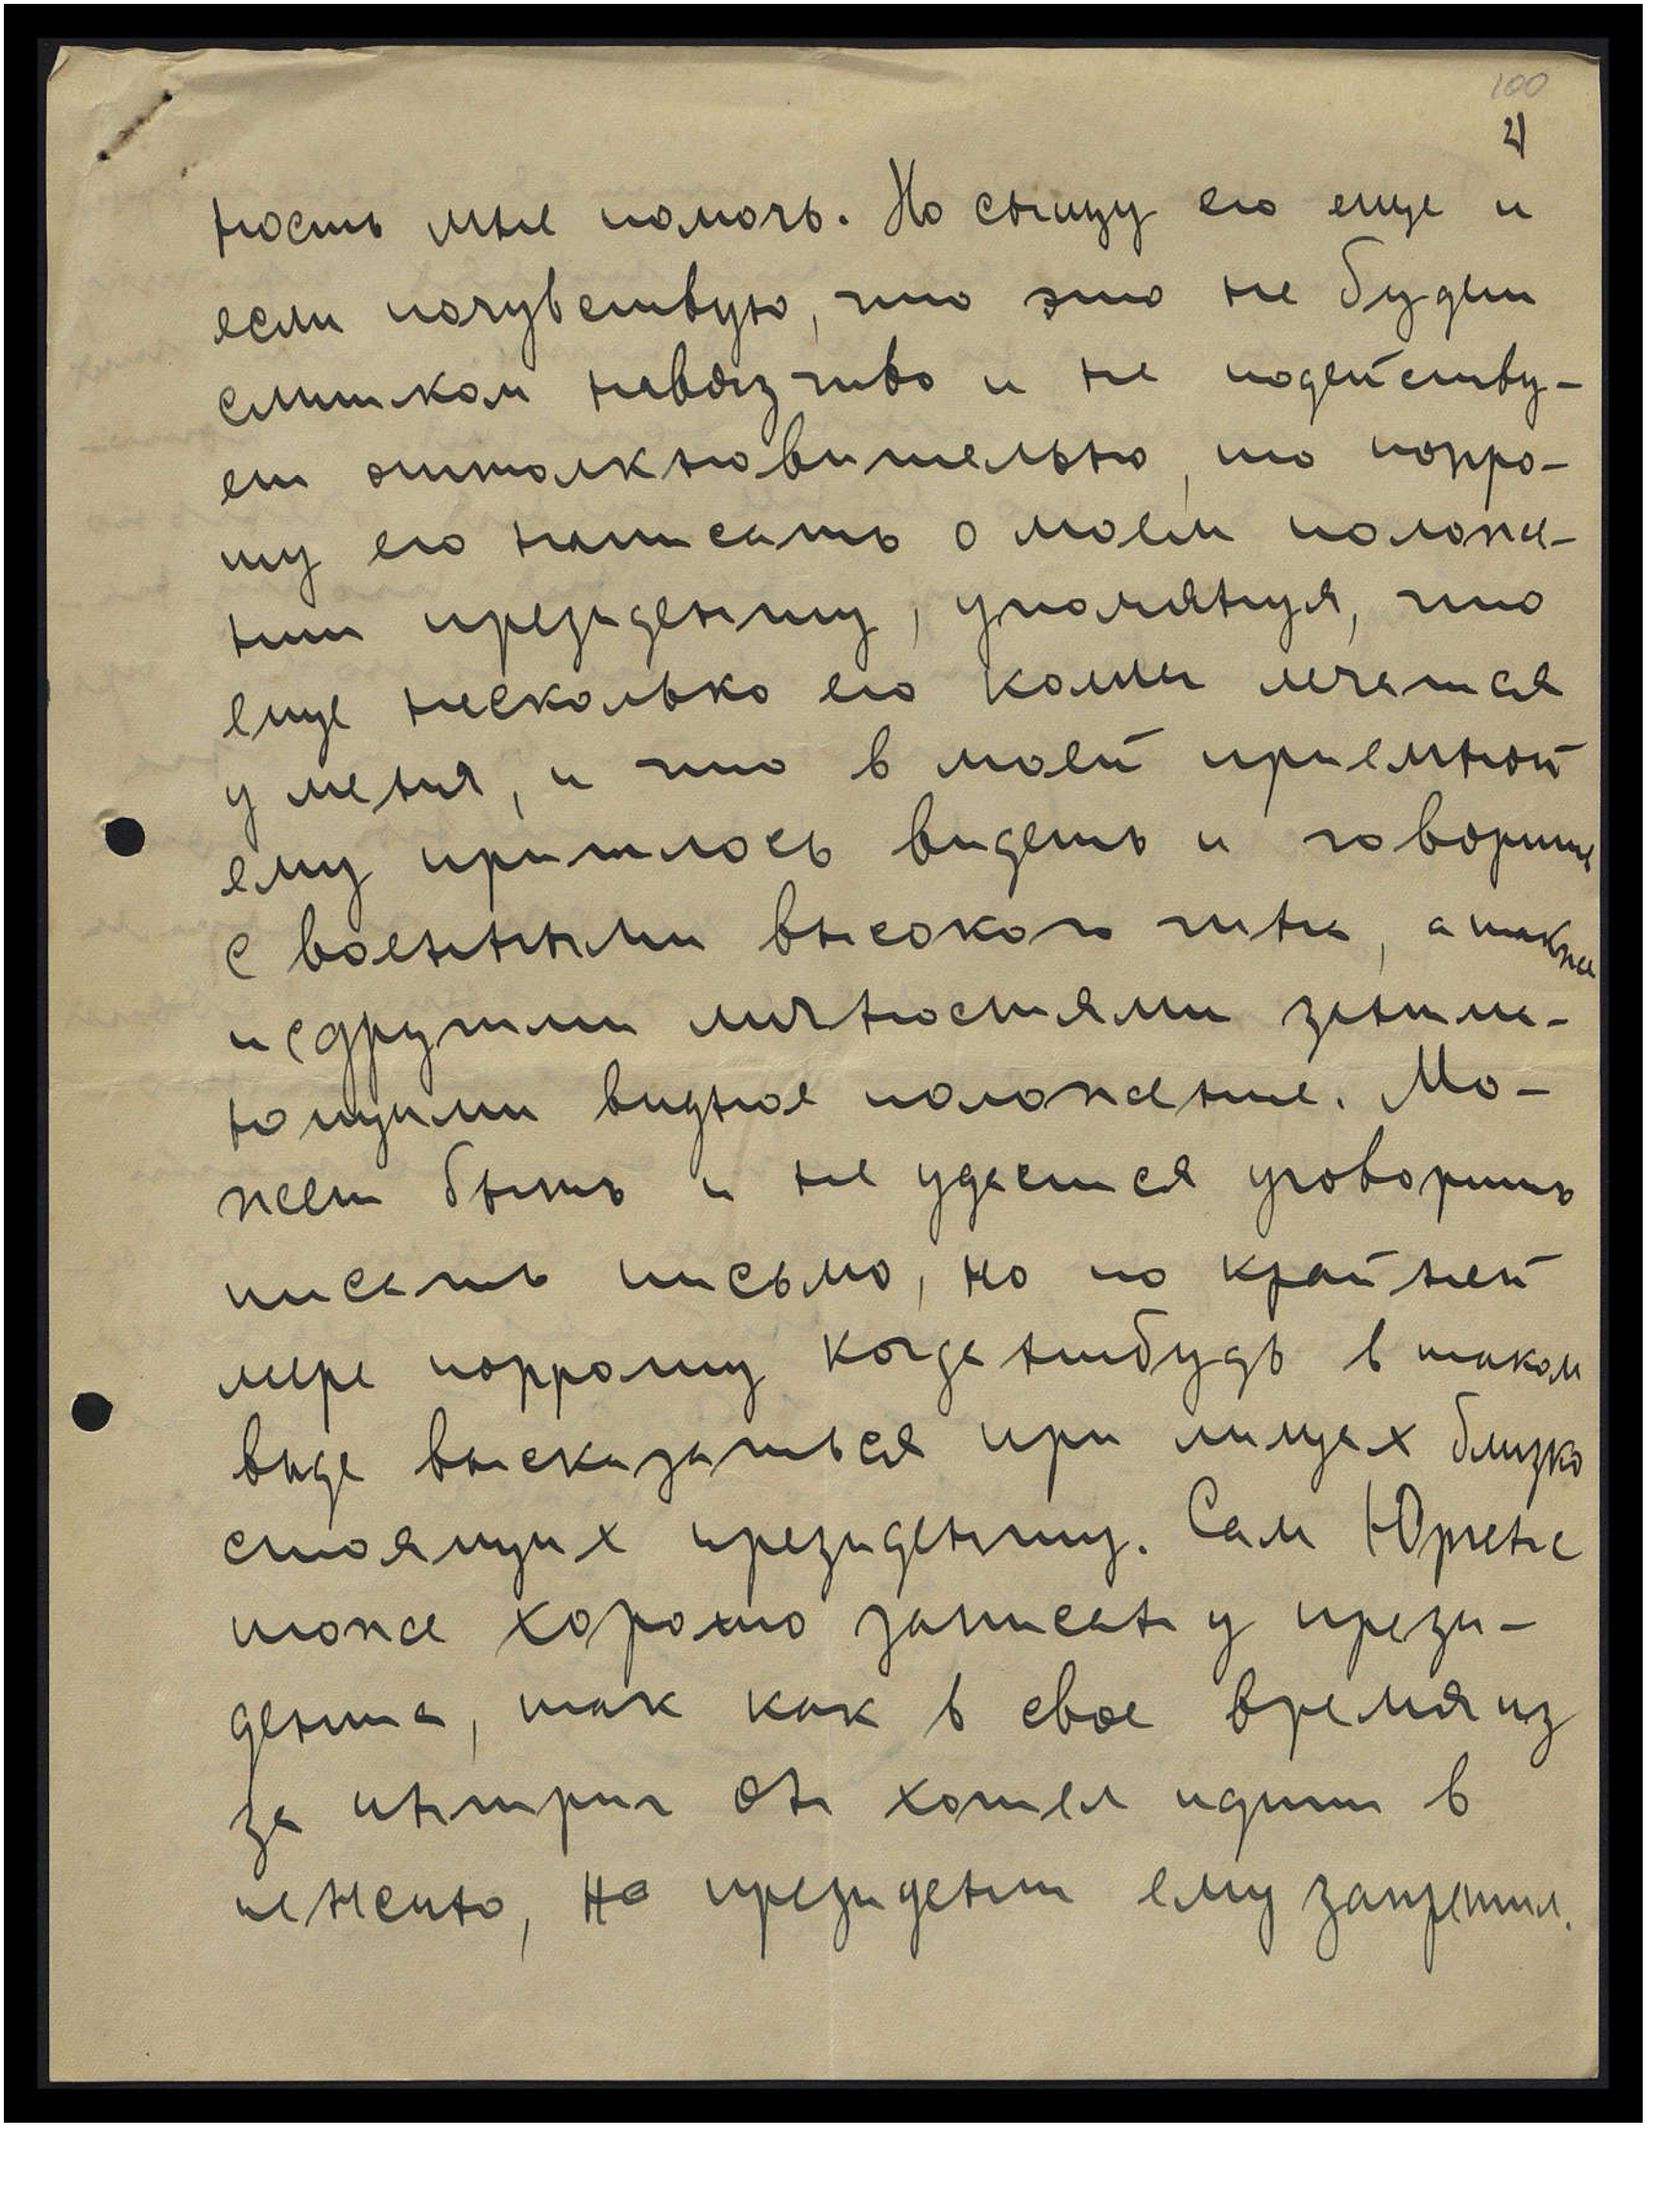 100
21
ность мне помочь. Но сыщу его еще и
если почувствую, что это не будет
слишком навязчиво и не подейству-
ет отталкновительно, то попро-
шу его написать о моем положе-
нии президенту, упомянуя, что
еще несколько его коллег лечатся
у меня, и что в моей приемной
ему пришлось видеть и говорить
с военными высокого чина, а также
и с другими личностями занима-
ющими видное положение. Мо-
жет быть и не удастся уговорить
писать письмо, но по крайней
мере попрошу когда нибудь в таком
виде высказаться при лицах близко
стоящих президенту. Сам Юргенс
тоже хорошо записан у прези-
дента, так как в свое время из
за интриг он хотел идти в
пенсию, но президент ему запретил.